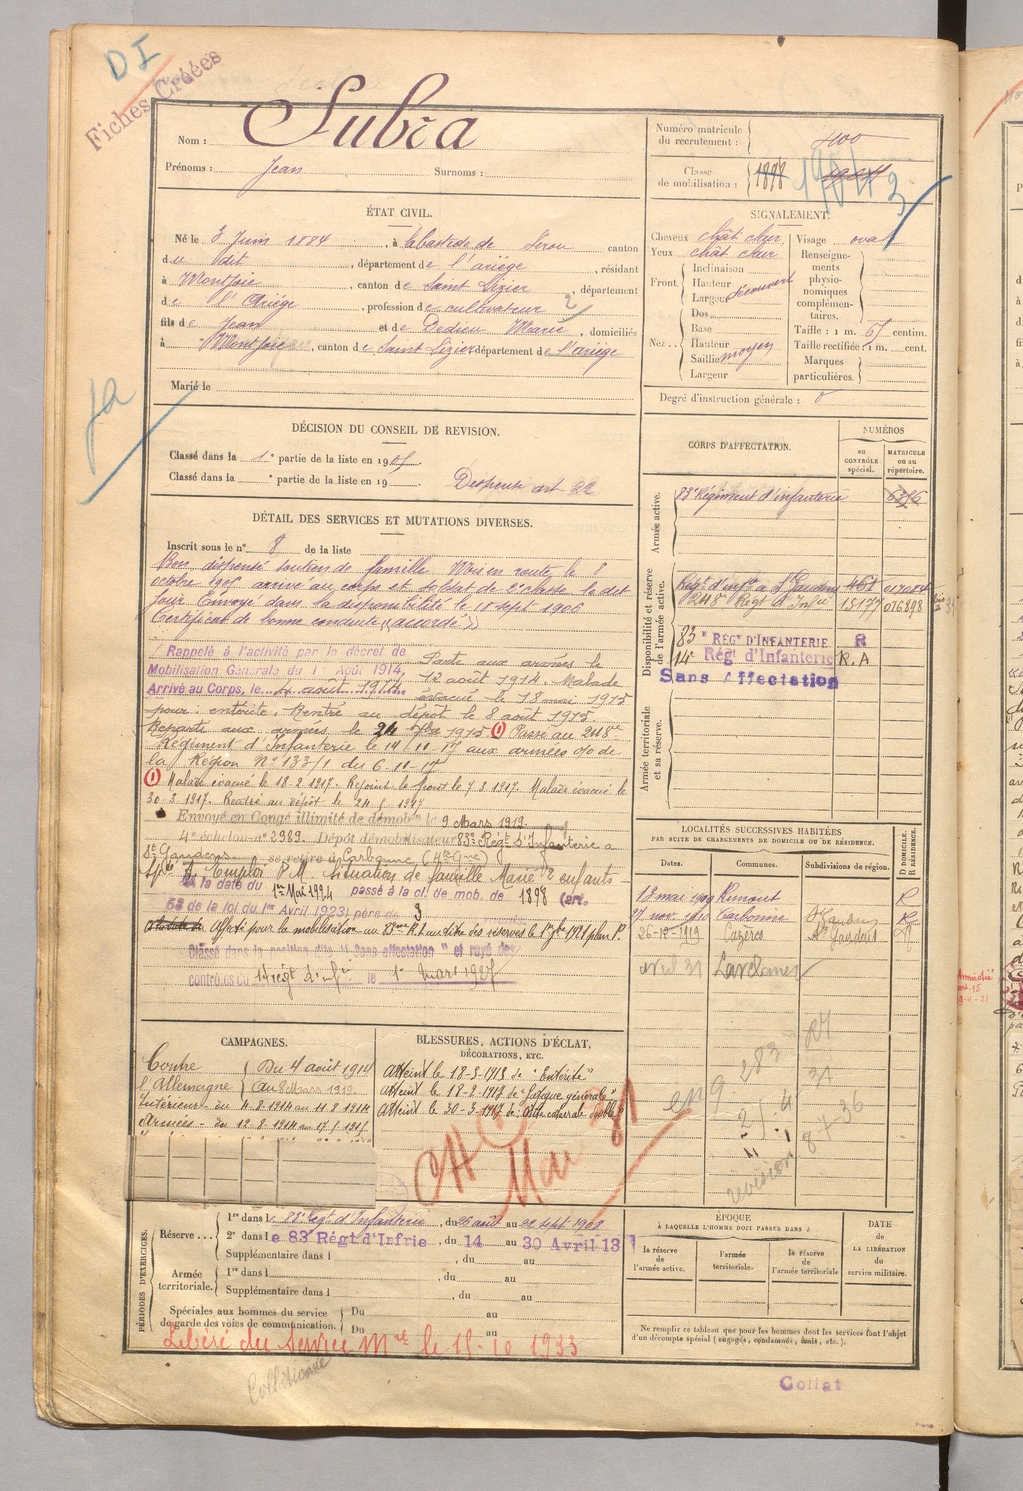 DI
Fiches Créées
Nom : Subra
Prénoms : Jean Surnoms :
Numéro matricule du recrutement : 400
Classe de mobilisation : 1898
ÉTAT CIVIL.
Né le 3 Juin 1884, à Labastide de Sérou canton
du dit, département de l'ariège, résidant
à Montjoie, canton de Saint Lizier, département
de l'Ariège, profession de cultivateur
fils de Jean et de Dedieu Marie, domiciliés
à Montjoie, canton de Saint Lizier département de l'ariège
Marié le
SIGNALEMENT.
Cheveux chât clair
Yeux chât clair
Front. Inclinaison
Hauteur
Largeur découvert
Nez Dos
Base
Hauteur
Saillie moyen
Largeur
Visage oval
Renseignements physionomiques complémentaires.
Taille : 1 m. 65 centim.
Taille rectifiée : 1 m. cent.
Marques particulières.
Degré d'instruction générale :
DÉCISION DU CONSEIL DE REVISION.
Classé dans la 1e partie de la liste en 1905.
Classé dans la e partie de la liste en 19
Dispensé art 22
DÉTAIL DES SERVICES ET MUTATIONS DIVERSES.
Inscrit sous le n° 8 de la liste
Bon, dispensé soutien de famille Mis en route le 8
octobre 1905 arrivé au corps et soldat de 2e classe le dit
jour. Envoyé dans la disponibilité le 18 sept 1906
Certificat de bonne conduite "accordé"
Rappelé à l'activité par le décret de
Mobilisation Générale du 1er Août 1914,
Arrivé au Corps, le 4 août 1914.
Parti aux armées le
12 août 1914. Malade
évacué le 18 mai 1915
pour : entérite. Rentré au dépôt le 8 août 1915.
Reparti aux armées le 24 1915. (1) Passé au 248e
Régiment d'Infanterie le 14/11-17 aux armées o/o de
la Région N° 133/1 du 6-11-17
(1) Malade évacué le 18-2-1917. Rejoint le front le 7-3-1917. Malade évacué le
30-3-1917. Rentré au dépôt le 24-5-1917
Envoyé en Congé illimité de démob. le 9 Mars 1919.
4e échelon n° 2989. Dépôt démobilisateur 83e Régt d'Infanterie à
St Gaudens. se retire à Carbonne (Hte Gne)
Emploi P.M. Situation de famille Marié 2 enfants
A la date du 1er Mai 1924 passé à la cl. de mob. de 1898 (art.
58 de la loi du 1er Avril 1923) père de 3
Affecté pour la mobilisation au R.I.
Classé dans la position dite "Sans affectation" et rayé des
contrôles du 14 régt d'infie le 1er Mars 1927
CORPS D'AFFECTATION.
NUMÉROS
au CONTRÔLE spécial.
MATRICULE ou au répertoire.
Armée active.
83e Régiment d'infanterie 6376
Disponibilité et réserve de l'armée active.
Régt d'inftie à St Gaudens 461
248e Régt d'Infie 15177 016898
83e RÉGt D'INFANTERIE R
14e Régt d'Infanterie R.A
Sans Affectation
Armée territoriale et sa réserve.
LOCALITÉS SUCCESSIVES HABITÉES
PAR SUITE DE CHANGEMENTS DE DOMICILE OU DE RÉSIDENCE.
Dates.
Communes.
Subdivisions de région.
D DOMICILE.
R RÉSIDENCE.
13 mai 1909 Rimont R
27 nov. 1910 Carbonne St Gaudens R
26-12-1919 Cazères St Gaudens
avril 31 Lavelanet
283
révision
CAMPAGNES.
Contre l'Allemagne
Du 4 août 1914
Au 8 Mars 1919
Intérieur du 4-8-1914 au 11-8-1914
Armées du 12-8-1914 au 17-5-1915
BLESSURES, ACTIONS D'ÉCLAT,
DÉCORATIONS, ETC.
Atteint le 18-5-1915 de "Entérite"
Atteint le 18-2-1917 de "fatigue générale"
Atteint le 30-3-1917 de
Mai 31
PÉRIODES D'EXERCICES.
Réserve
1re dans le 83e Régt d'Infanterie, du 26 août au 22 sept 1908
2e dans le 83e Régt d'Infrie, du 14 au 30 Avril 13
Supplémentaire dans l , du au
Armée territoriale.
1re dans l , du au
Supplémentaire dans l , du au
Spéciales aux hommes du service de garde des voies de communication.
Du au
Du au
Libéré du Service Mre le 15-10 1933
ÉPOQUE
À LAQUELLE L'HOMME DOIT PASSER DANS :
la réserve de l'armée active.
l'armée territoriale.
la réserve de l'armée territoriale
DATE de LA LIBÉRATION du service militaire.
Ne remplir ce tableau que pour les hommes dont les services font l'objet
d'un décompte spécial (engagés, condamnés, omis, etc.).
Collationné
Collat